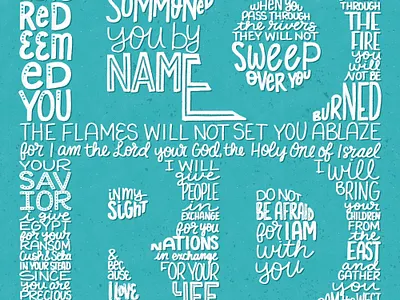 ReD
EEM
eD
YOU
SUMMONeD
you by
NAME
WHEN YOU
PASS THROUGH
the rivers
THEY WILL NOT
SWeeP
OVER YOU
THROUGH
THE
FIRE
you
will
NOT BE
BURNED
THE FLAMES WILL NOT SET YOU ABLAZE
for I am the Lord your God, the Holy One of Israel
YOUR
SAV
IOR
i give
EGYPT
for your
RANSOM
Cush & Seba
IN YOUR STEAD
SINCE
YOU are
PRECIOUS
in MY
SIGHT
&
BEC
AUSE
I LOVE
I WILL
give
PEOPLE
in
EXCHANGE
for you
NATIONS
in exchange
FOR YOUR
LIFE
DO NOT
BE AFRAID
for I AM
with
you
I
WILL
BRING
your
CHILDREN
FROM the
EAST
and
GATHER
you